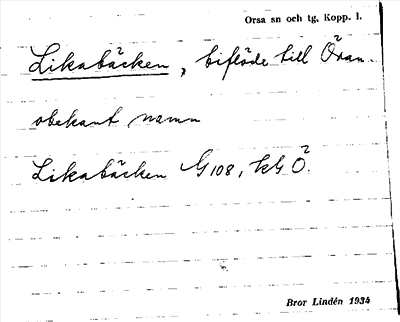 Orsa sn och tg, Kopp. l.
Likabäcken, biflöde till Öran.
obekant namn
Likabäcken G108, kG Ö.
Bror Lindén 1934